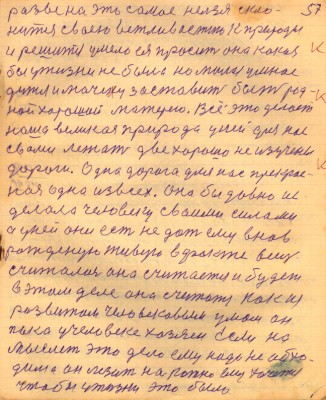 57
разве на это самое нелзя скло-
нится своею ветливастью к природы
и решити умело ея просит она какая
бы у жизни не была но милая умное
дитя и мачеху заставит быт род-
ной хорошай матерью. Всё это делает
наша великая природа у ней для нас
свами лежат две хорошо не изучены
дороги. Одна дорога для нас прекрас-
ная одна из всех. Она бы давно и
делала человеку своими силами
а у ней они ест не дат ему внов
рожденую живую в факте вещ
считалая она считается и будет
в этом деле она считат как и
развитом человековым умом он
пока у человека хозяен если на
мыслет это дело ему надо не обхо-
дима он лизит на рожно ему хочется
чтобы у жизни это было
К
К
К